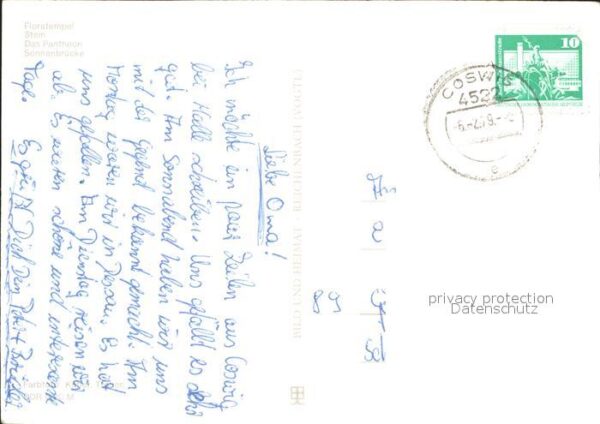 Floratempel
Stein
Das Pantheon
Sonnenbrücke
Liebe Oma!
Ich möchte ein paar Zeilen aus Coswig
bei Halle schreiben. Uns gefällt es sehr
gut. Am Sonnabend haben wir uns
mit der Gegend bekannt gemacht. Am
Montag waren wir in Dessau. Es hat
uns gefallen. Am Dienstag reisen wir
ab. Es waren schöne und interessante
Tage. Es grüßt Dich Dein
BILD UND HEIMAT · REICHENBACH
10
COSWIG
4522
e
89
privacy protection
Datenschutz